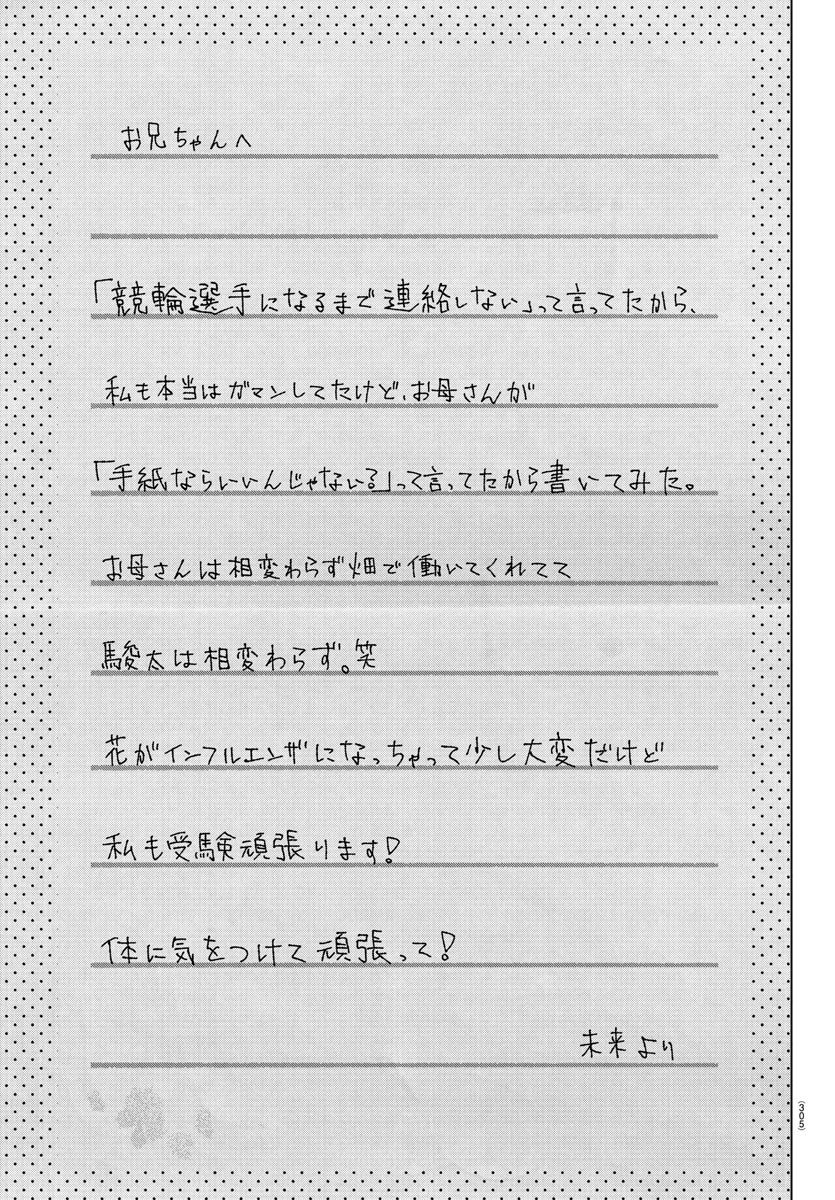 お兄ちゃんへ
「競輪選手になるまで連絡しない」って言ってたから、
私も本当はガマンしてたけど、お母さんが
「手紙ならいいんじゃないる」って言ってたから書いてみた。
お母さんは相変わらず畑で働いてくれてて
駿太は相変わらず。笑
花がインフルエンザになっちゃって少し大変だけど
私も受験頑張ります!
体に気をつけて頑張って!
未来より
(305)